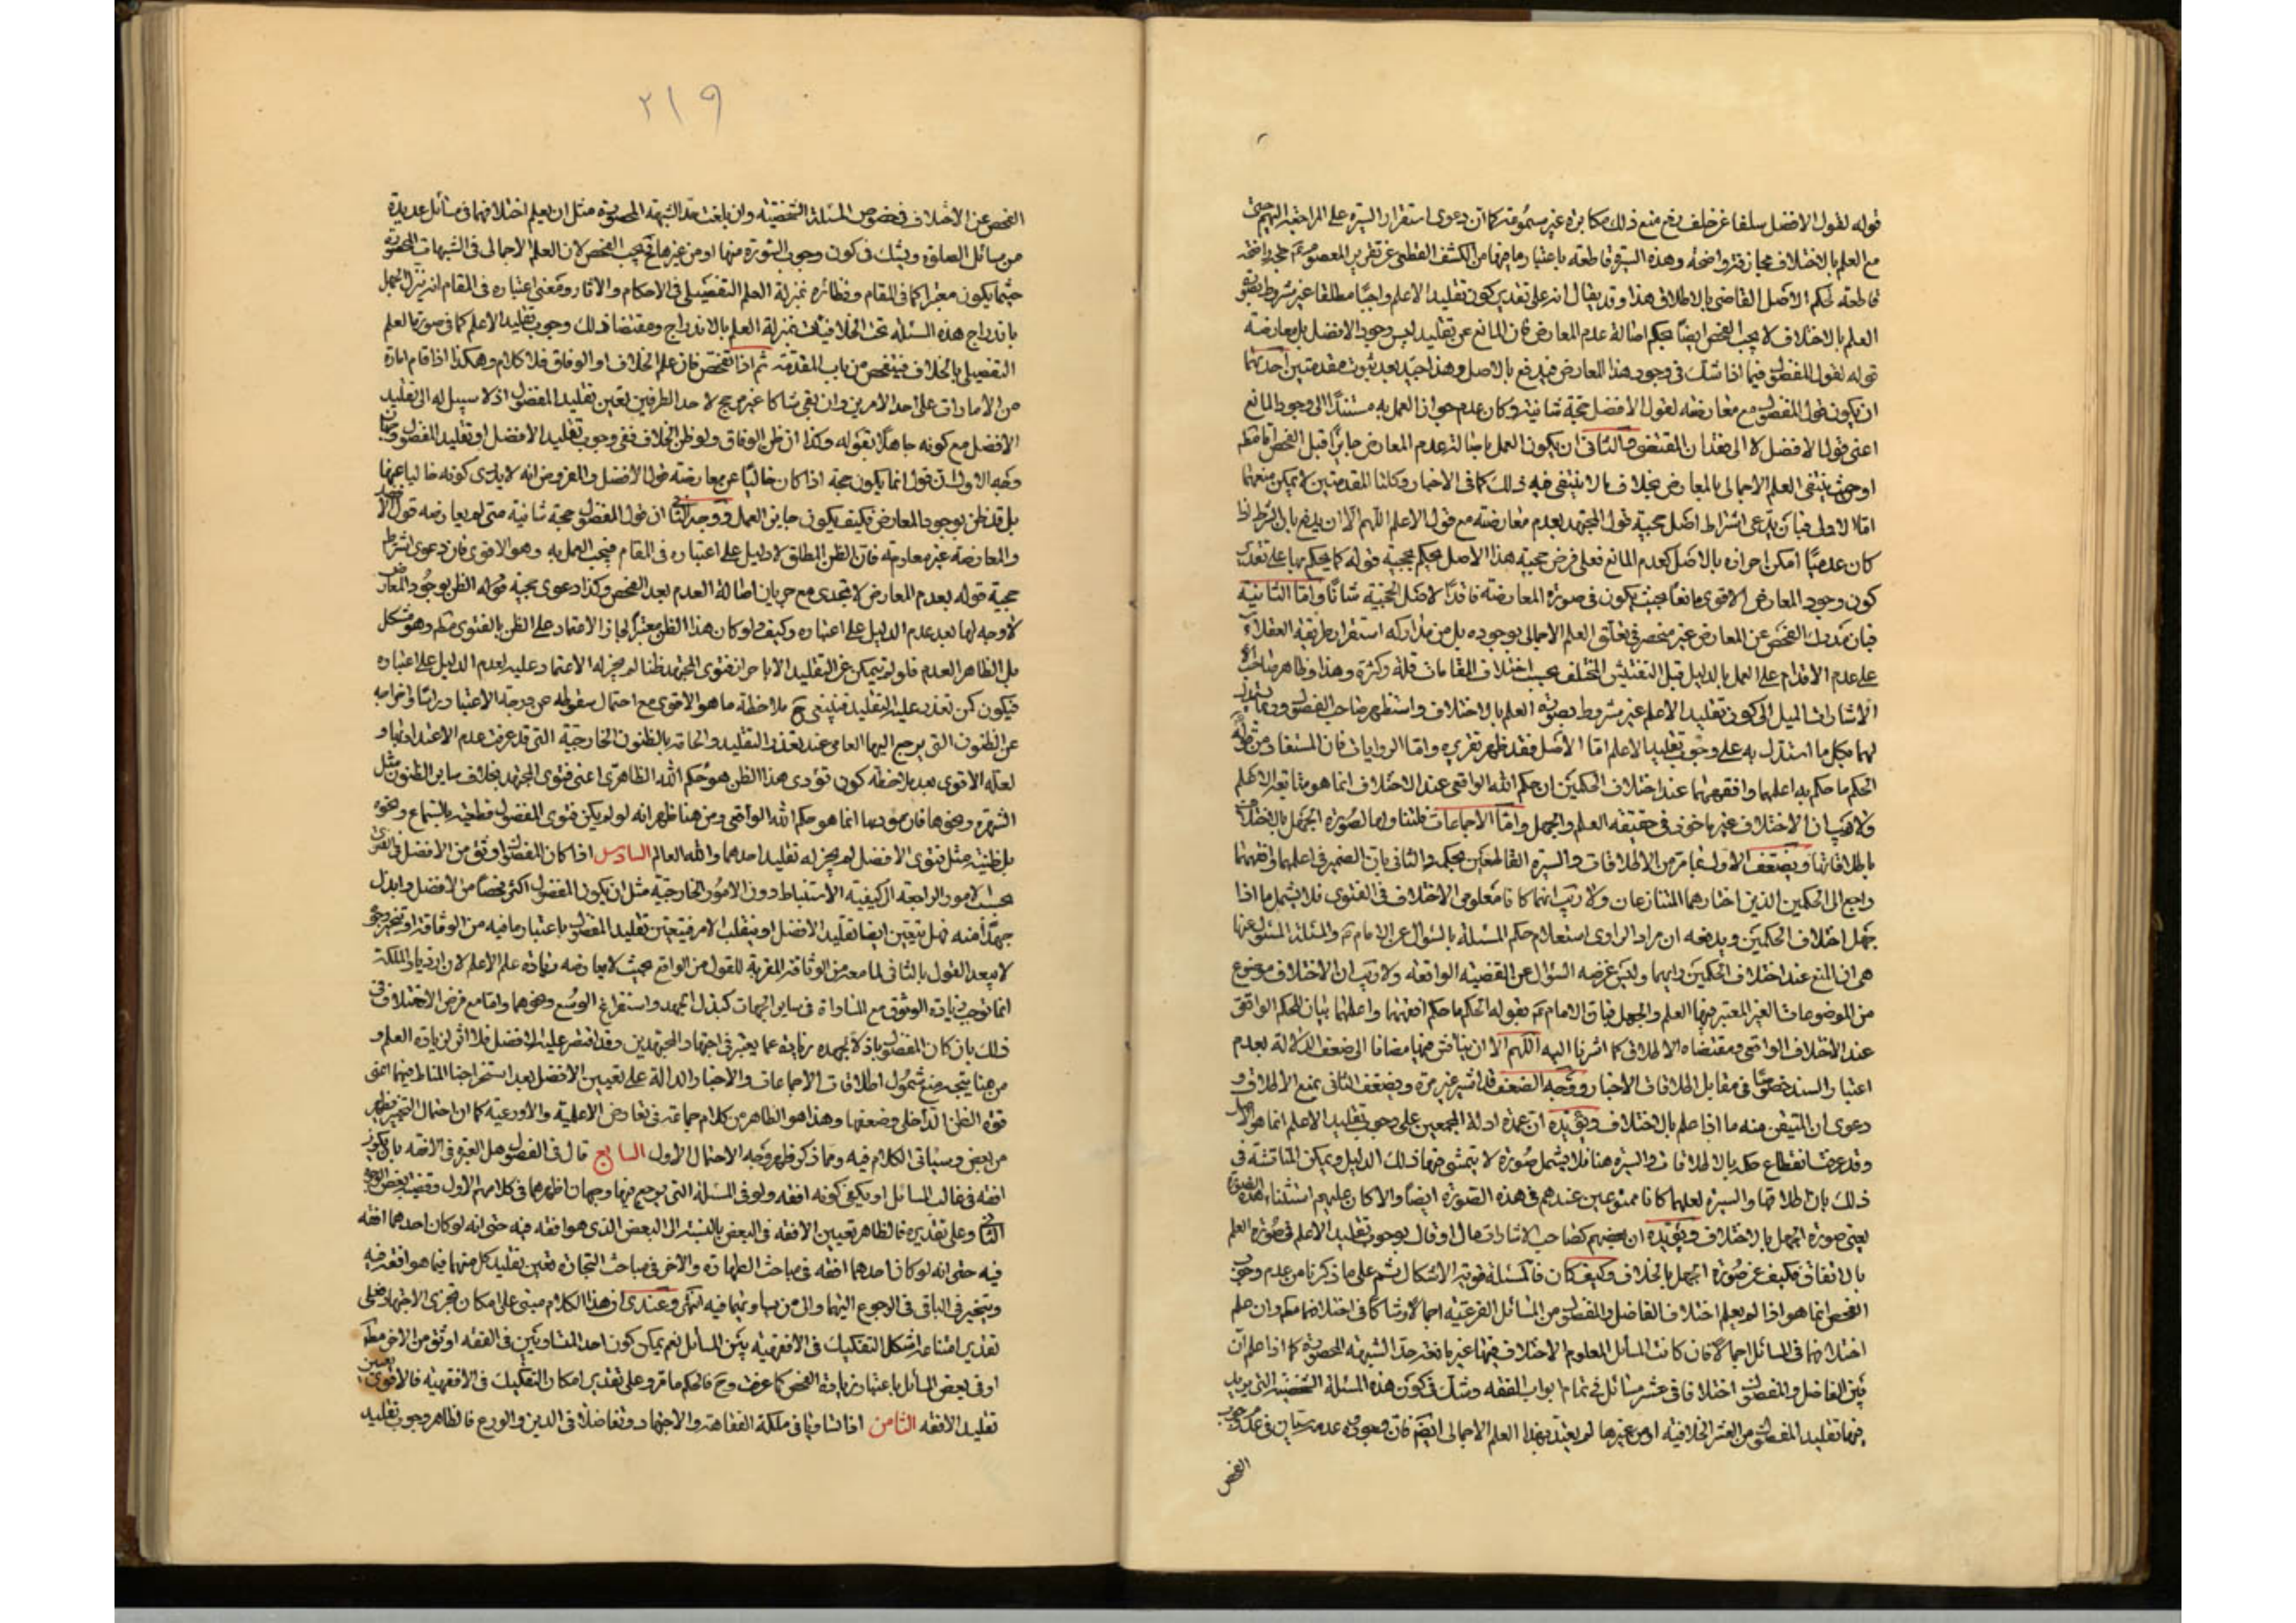 قوله لقول الافضل سلفا عن خلف يدفع منع ذلك مكابرة غير مسموعة كما ان دعوى استقرار السيرة على المراجعة اليهم حتى
مع العلم بالاختلاف مجازفة واضحة وهذه السيرة قاطعة باعتبار ما فيها من الكشف القطعى عن تقرير المعصوم حجة واضحة
قاطعة لحكم الاصل القاضى بالاطلاق هذا وقد يقال انه على تقدير كون تقليد الاعلم واجبا مطلقا غير مشروط بصورة
العلم بالاختلاف لا يجب الفحص ايضا بحكم اصالة عدم المعارض فان المانع عن تقليده ليس وجود الافضل بل معارضة
قوله لقول المفضول فيما اذا شك فى وجود هذا المعارض فيدفع بالاصل وهذا جيد بعد ثبوت مقدمتين احديهما
ان يكون قول المفضول مع معارضته لقول الافضل حجة شانية وكان عدم جواز العمل به مستندا الى وجود المانع
اعنى قول الافضل لا الى فقدان المقتضى والثانى ان يكون العمل باصالة عدم المعارض جايزا قبل الفحص اما مطلقا
او حيث ينتفى العلم الاجمالى بالمعارض بخلاف ما لا ينتفى فيه ذلك كما فى الاخبار وكلتا المقدمتين لا يمكن منعهما
اما الاولى فبان يدعى اشتراط اصل حجية قول المجتهد بعدم معارضته مع قول الاعلم اللهم الا ان يدفع بان الشرط اذا
كان عدميا امكن احرازه بالاصل كعدم المانع فعلى فرض حجية هذا الاصل يحكم بحجية قوله كما يحكم بها على تقدير
كون وجود المعارض الاقوى مانعا بحيث يكون فى صورة المعارضة فاقدا لاصل الحجية شانا واما الثانية
فبان مدرك الفحص عن المعارض غير منحصر فى تعلق العلم الاجمالى بوجوده بل من مداركه استقرار طريقة العقلاء
على عدم الاقدام على العمل بالدليل قبل التفتيش المختلف بحسب اختلاف المقامات قلة وكثرة وهذا وظاهر صاحب
الاشارات الميل الى كون تقليد الاعلم غير مشروط بصورة العلم بالاختلاف واستظهره صاحب الفصول وربما يستدل
لهما بكل ما استدل به على وجوب تقليد الاعلم اما الاصل فقد ظهر تقريره واما الروايات فان المستفاد من قوله
الحكم ما حكم به اعلمهما وافقههما عند اختلاف الحكمين ان حكم الله الواقعى عند الاختلاف انما هو متابعة الاعلم
ولا ريب ان الاختلاف غير ماخوذ فى حقيقته العلم والجهل واما الاجماعات فلتناولها لصورة الجهل بالفضل
باطلاقاتها ويضعف الاول بما مر من الاطلاقات والسيرة القاطعين بحكمه والثانى بان الضمير فى اعلمهما وافقههما
راجع الى الحكمين الذين اختارهما المتنازعان ولا ريب انهما كانا معلومى الاختلاف فى الفتوى فلا يشمل ما اذا
جهل اختلاف الحكمين ويدفعه ان مراد الراوى استعلام حكم المسئلة بالسؤال عن الامام والمسئلة المسئول عنها
هى ان المنع عند اختلاف الحكمين وليس غرضه السؤال عن القضية الواقعة ولا ريب ان الاختلاف موضوع
من الموضوعات الغير المعتبر فيها العلم والجهل فبان الامام بقوله الحكم ما حكم افقههما واعلمهما بيان للحكم الواقعى
عند الاختلاف الواقعى ومقتضاه الاطلاق كما اشرنا اليه اللهم الا ان يناقش فيها مضافا الى ضعف الدلالة بعدم
اعتبار السند خصوصا فى مقابل اطلاقات الاخبار ووجه الضعف قد اشير غير مرة ويضعف الثانى بمنع الاطلاق و
دعوى ان المتيقن منه ما اذا علم بالاختلاف ويؤيده ان عمدة ادلة المجمعين على وجوب تقليد الاعلم انما هو الاصل
وقد عرفت انقطاع حكمه بالاطلاقات والسيرة هنا فلا يشمل صورة لا يتمشى فيها ذلك الدليل ويمكن المناقشة فى
ذلك بان اطلاقها والسيرة لعلهما كانا ممنوعين عندهم فى هذه الصورة ايضا والا كان عليهم استثناء هذه الصورة
يعنى صورة الجهل بالاختلاف ويؤيده ان بعضهم كصاحب الاشارات مال او قال بوجوب تقليد الاعلم فى صورة العلم
بالاتفاق فكيف عن صورة الجهل بالخلاف وكيف كان فالمسئلة قوية الاشكال ثم على ما ذكرنا من عدم وجوب
الفحص انما هو اذا لم يعلم اختلاف الفاضل والمفضول من المسائل الفرعية اجمالا وشاكا فى اختلافهما وان علم
اختلافهما فى المسائل اجمالا فان كانت المسائل المعلوم الاختلاف فيها غير بالغة حد الشبهة المحصورة كما اذا علم ان
بين الفاضل والمفضول اختلافا فى عشر مسائل فى تمام ابواب الفقه وشك فى كون هذه المسئلة الشخصية التى يريد
فيها تقليد المفضول من العشر الخلافية او من غيرها لم يعتد بهذا العلم الاجمالى ايضا فان وجوده وعدمه سيان فى عدم وجوب
الفحص
٢١٩
الفحص عن الاختلاف فى خصوص المسئلة الشخصية وان بلغت حد الشبهة المحصورة مثل ان يعلم اختلافهما فى مسائل عديدة
من مسائل الصلوة ويشك فى كون وجوب السورة منها او من غيرها فيجب الفحص لان العلم الاجمالى فى الشبهات المحصورة
حيثما يكون معتبرا كما فى المقام ونظائره بمنزلة العلم التفصيلى فى الاحكام والاثار ومعنى اعتباره فى المقام ان ينزل الجهل
باندراج هذه المسئلة تحت الخلافيات بمنزلة العلم بالاندراج ومقتضى ذلك وجوب تقليد الاعلم كما فى صورة العلم
التفصيلى بالخلاف فيتفحص من باب المقدمة ثم اذا تفحص فان علم الخلاف او الوفاق فلا كلام وهكذا اذا قام امارة
من الامارات على احد الامرين وان بقى شاكا غير مرجح لاحد الطرفين تعين تقليد المفضول اذ لا سبيل له الى تقليد
الافضل مع كونه جاهلا بقوله وكذا ان ظن الوفاق ولو ظن الخلاف ففى وجوب تقليد الافضل او تقليد المفضول وجهان
وجه الاول ان قوله انما يكون حجة اذا كان خاليا عن معارضة قول الافضل والمفروض انه لا يدرى كونه خاليا عنها
بل قد ظن بوجود المعارض فكيف يكون جايز العمل ووجه الثانى ان قول المفضول حجة شانية متى لم يعارضه قول الافضل
والمعارضة غير معلومة فان الظن المطلق لا دليل على اعتباره فى المقام فيجب العمل به وهو الاقوى فان دعوى اشتراط
حجية قوله بعدم المعارض لا تجدى مع جريان اصالة العدم بعد الفحص وكذا دعوى حجية قوله الظن بوجود المعارض
لا وجه لها بعد عدم الدليل على اعتباره وكيف ولو كان هذا الظن معتبرا لجاز الاعتماد على الظن بالفتوى وهو مشكل
بل الظاهر العدم فلو لم يتمكن عن التقليد الا باحراز فتوى المجتهد ظنا لم يجز له الاعتماد عليه لعدم الدليل على اعتباره
فيكون كمن تعذر عليه التقليد فينبغى ملاحظة ما هو الاقوى مع احتمال سقوطه عن درجة الاعتبار راسا واخراجه
عن الظنون التى يرجع اليها العامى عند تعذر التقليد والحاقه بالظنون الخارجية التى قد عرفت عدم الاعتداد بها و
لعله الاقوى بعد ملاحظة كون مؤدى هذا الظن هو حكم الله الظاهرى اعنى فتوى المجتهد بخلاف ساير الظنون مثل
الشهرة ونحوها فان مؤديها انما هو حكم الله الواقعى ومن هنا ظهر انه لو لم يكن فتوى المفضول قطعية بالسماع ونحوه
بل ظنية مثل فتوى الافضل لم يجز له تقليد احدهما والله العالم السادس اذا كان المفضول اوثق من الافضل
بحسب الامور الراجعة الى كيفية الاستنباط دون الامور الخارجية مثل ان يكون المفضول اكثر فحصا من الافضل وابذل
جهدا منه فهل يتعين ايضا تقليد الافضل او ينقلب الامر فيتعين تقليد المفضول باعتبار ما فيه من الوثاقة او يتخير وجوه
لا يبعد القول بالثانى لما معه من الوثاقة المقربة للقول من الواقع بحيث لا يعارضه زيادة علم الاعلم لان ازدياد الملكة
انما توجب زيادة الوثوق مع المساواة فى ساير الجهات كبذل الجهد واستفراغ الوسع ونحوهما واما مع فرض الاختلاف فى
ذلك بان كان المفضول باذلا لجهده زيادة عما يعتبر فى اجتهاد المجتهدين وقد اقتصر عليه الافضل فلا اثر لزيادة العلم و
من هنا يتجه منع شمول اطلاقات الاجماعات والاخبار الدالة على تعيين الافضل بعد استخراجنا المناط فيهما اعنى
قوة الظن الداخلى وضعفها وهذا هو الظاهر من كلام جماعة فى تعارض الاعلمية والاورعية كما ان احتمال التخيير يظهر
من بعض وسياتى الكلام فيه ومما ذكر ظهر وجه الاحتمال الاول السابع قال فى الفصول هل العبرة فى الافقه بان يكون
افقه فى غالب المسائل او يكفى كونه افقه ولو فى المسئلة التى يرجع فيها وجهان اظهرهما فى كلامهم الاول وقضية بعض الوجوه
الثانى وعلى تقديره فالظاهر تعيين الافقه فى البعض بالنسبة الى البعض الذى هو افقه فيه حتى انه لو كان احدهما افقه
فيه حتى انه لو كان احدهما افقه فى مباحث الطهارة والاخر فى مباحث التجارة تعين تقليد كل منهما فيما هو افقه فيه
ويتخير فى الباقى فى الرجوع اليهما والى من يساويهما فيه انتهى وعندى ان هذا الكلام مبنى على امكان تجزى الاجتهاد فعلى
تقدير امتناعه اشكل التفكيك فى الافقهية بين المسائل نعم يمكن كون احد المتساويين فى الفقه اوثق من الاخر مطلقا
او فى بعض المسائل باعتبار زيادة الفحص كما عرفت وح فالحكم ما مر وعلى تقدير امكان التفكيك فى الافقهية فالاقوى تعيين
تقليد الافقه الثامن اذا تساويا فى ملكة الفقاهة والاجتهاد وتفاضلا فى الدين والورع فالظاهر وجوب تقليد